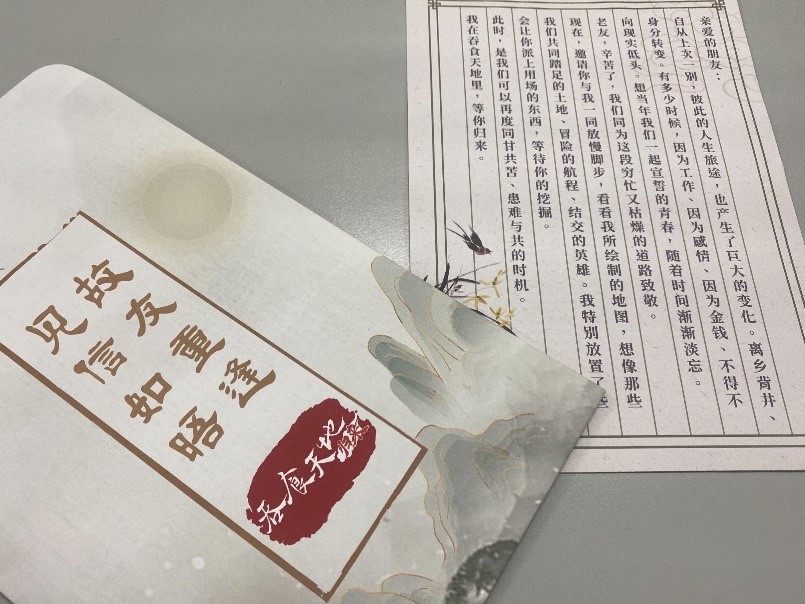 亲爱的朋友：
自从上次一别，彼此的人生旅途，也产生了巨大的变化。离乡背井、
身分转变。有多少时候，因为工作、因为感情、因为金钱、不得不
向现实低头。想当年我们一起宣誓的青春，随着时间渐渐淡忘。
老友，辛苦了，我们同为这段穷忙又枯燥的道路致敬。
现在，邀请你与我一同放慢脚步，看看我所绘制的地图，想像那些
我们共同踏足的土地、冒险的航程、结交的英雄。我特别放置了些
会让你派上用场的东西，等待你的挖掘。
此时，是我们可以再度同甘共苦、患难与共的时机。
我在吞食天地里，等你归来。
故友重逢
见信如晤
吞食天地